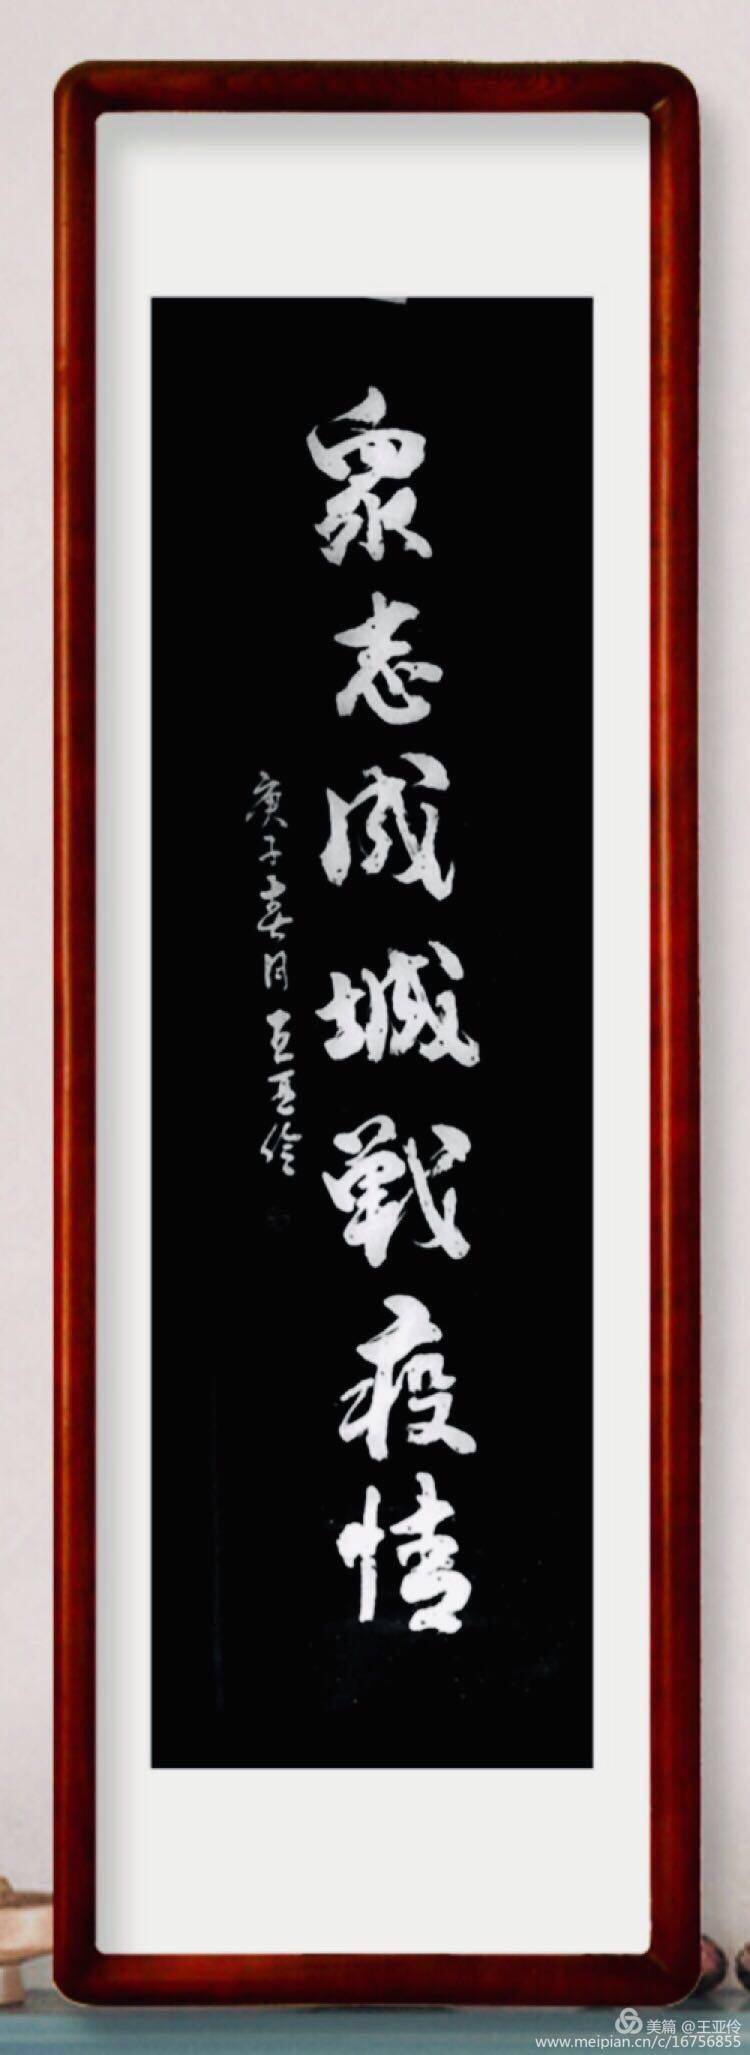 眾志成城戰疫情
庚子春月王亚伶
美篇 @王亚伶
www.meipian.cn/c/16756855